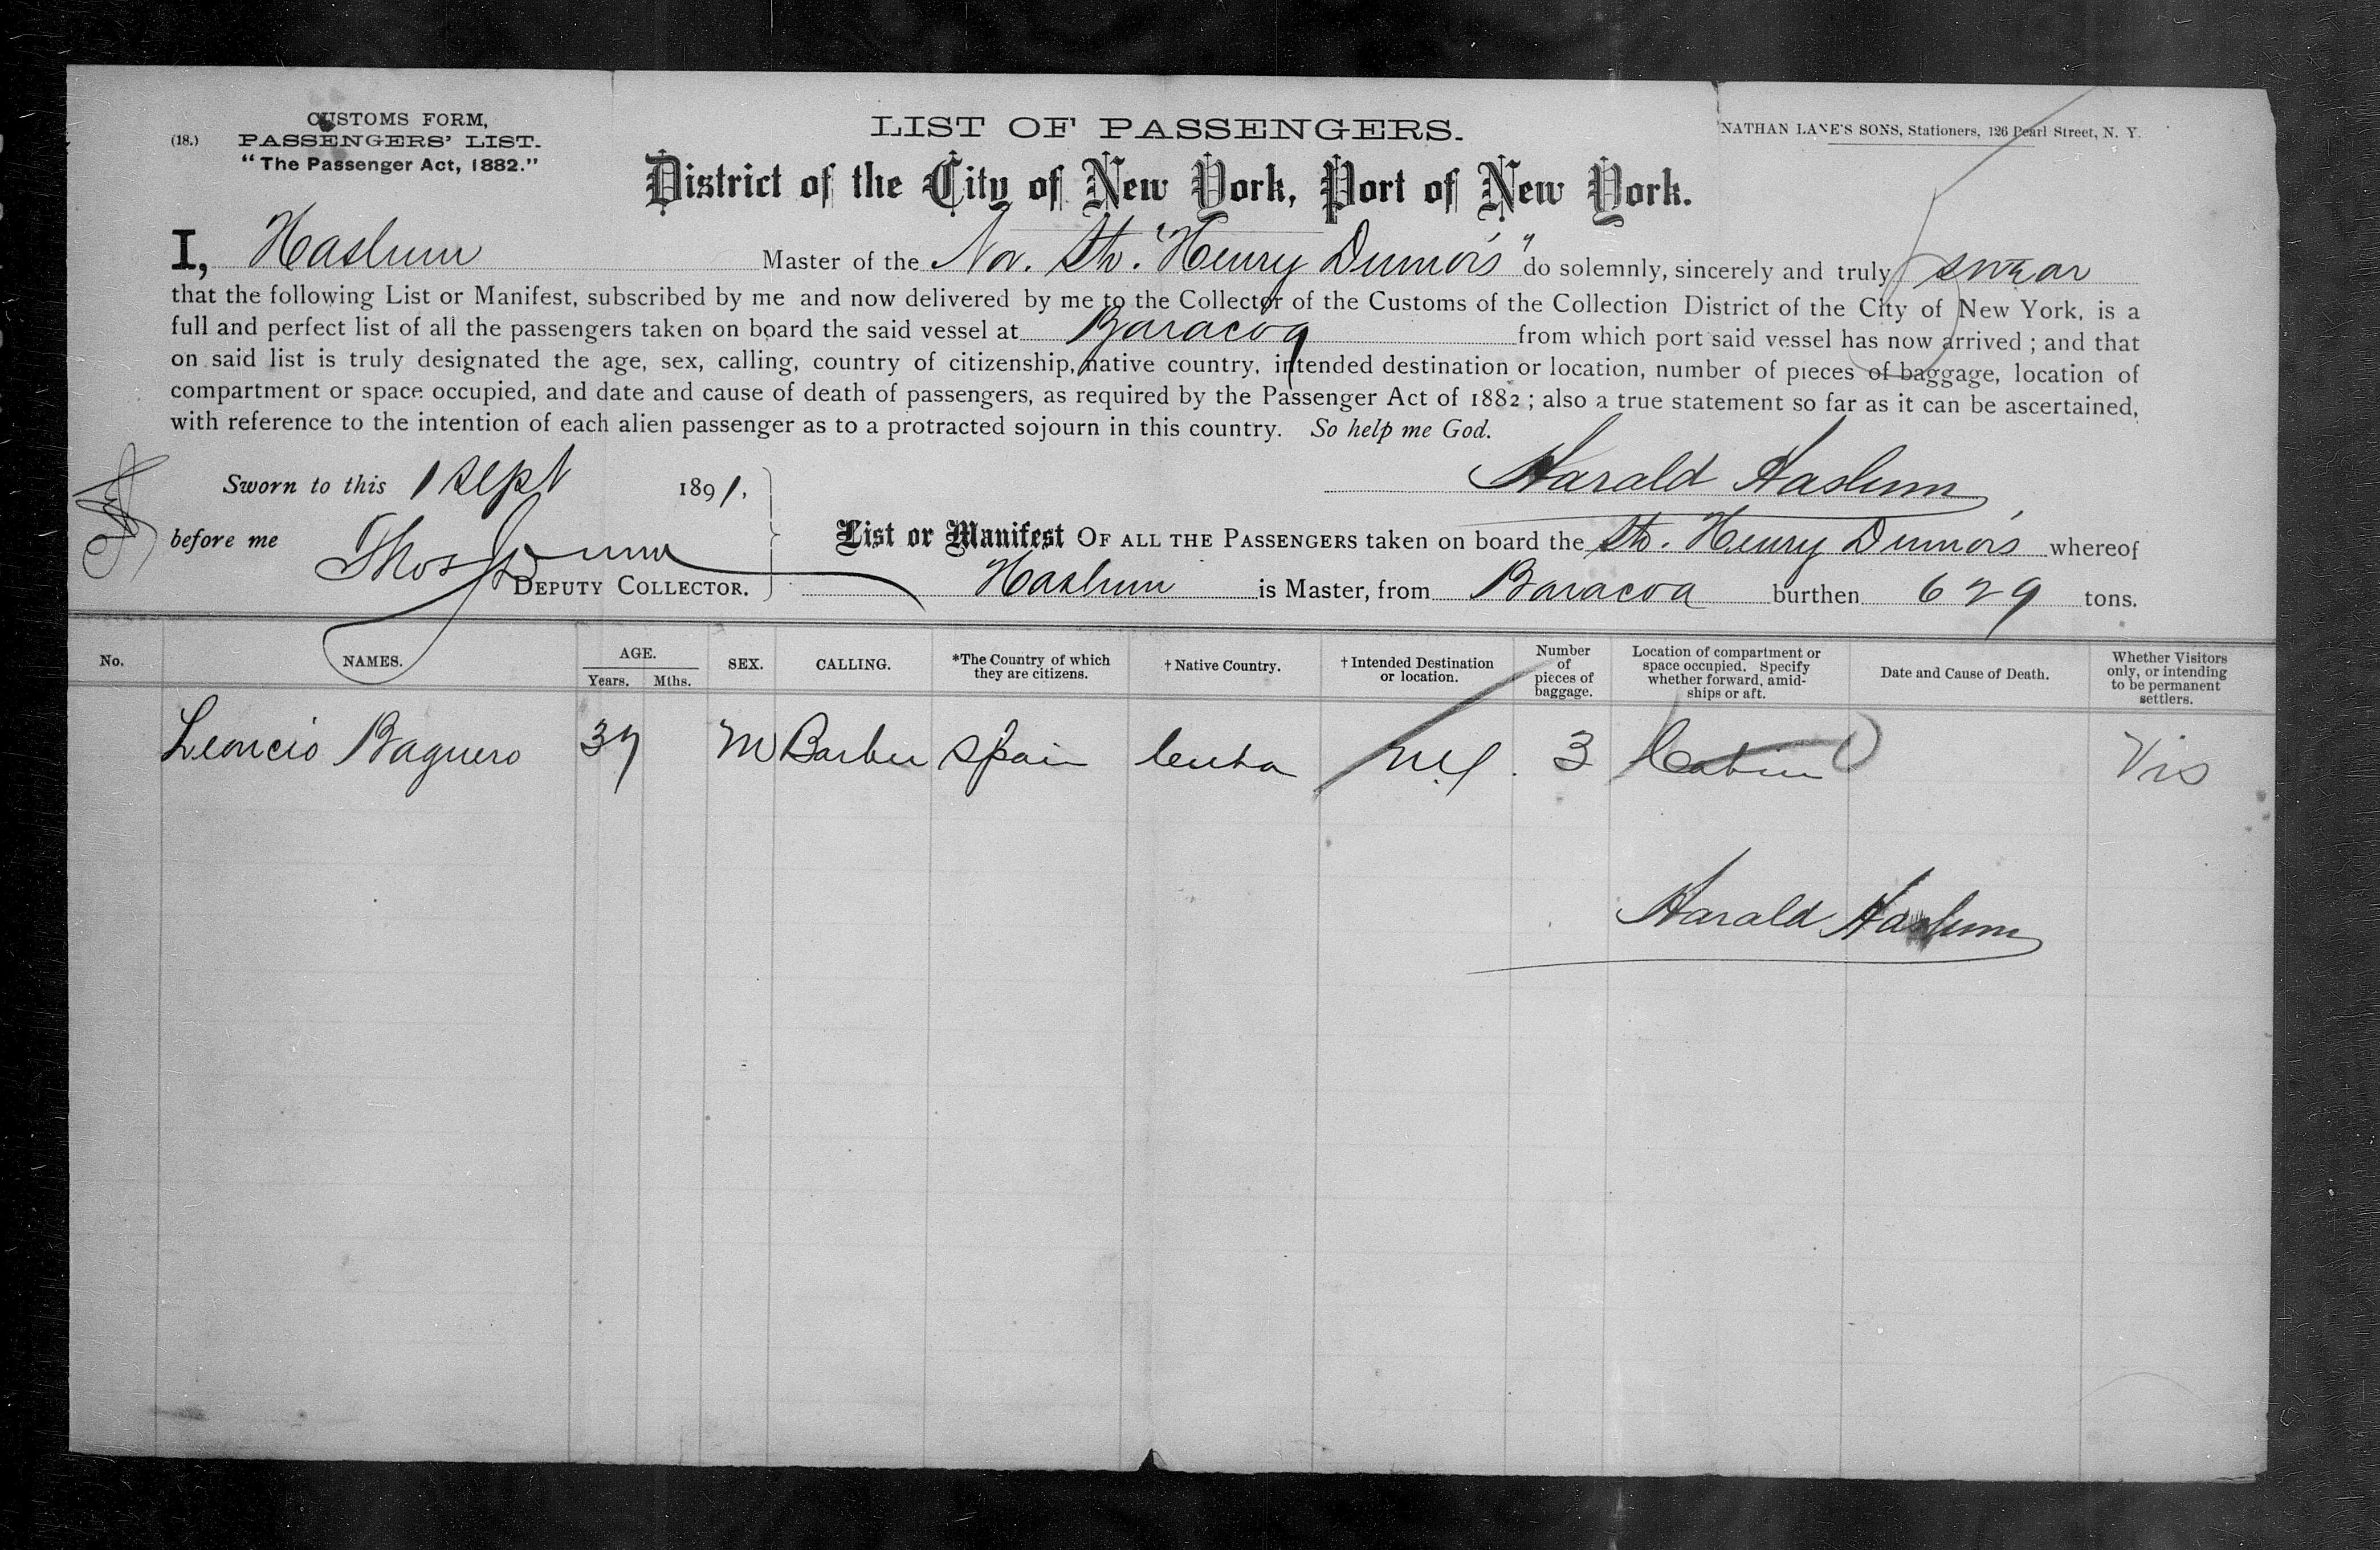 (18.)
CUSTOMS FORM,
PASSENGERS' LIST.
"The Passenger Act, 1882."
LIST OF PASSENGERS.
NATHAN LANE'S SONS, Stationers, 126 Pearl Street, N. Y.
District of the City of New York, Port of New York.
I, Haslum Master of the Nor. Str. "Henry Dumois" do solemnly, sincerely and truly swear
that the following List or Manifest, subscribed by me and now delivered by me to the Collector of the Customs of the Collection District of the City of New York, is a
full and perfect list of all the passengers taken on board the said vessel at Baracoa from which port said vessel has now arrived ; and that
on said list is truly designated the age, sex, calling, country of citizenship, native country, intended destination or location, number of pieces of baggage, location of
compartment or space occupied, and date and cause of death of passengers, as required by the Passenger Act of 1882 ; also a true statement so far as it can be ascertained,
with reference to the intention of each alien passenger as to a protracted sojourn in this country. So help me God.
Sworn to this 1 Sept 1891,
Harald Haslum
before me Thos
DEPUTY COLLECTOR.
List or Manifest OF ALL THE PASSENGERS taken on board the Str. Henry Dumois whereof
Haslum is Master, from Baracoa burthen 629 tons.
No. NAMES. AGE. Years. Mths. SEX. CALLING. *The Country of which they are citizens. † Native Country. † Intended Destination or location. Number of pieces of baggage. Location of compartment or space occupied. Specify whether forward, amid-ships or aft. Date and Cause of Death. Whether Visitors only, or intending to be permanent settlers.
Leoncio Baguero 37 M Barber Spain Cuba N.Y. 3 Cabin Vis
Harald Haslum